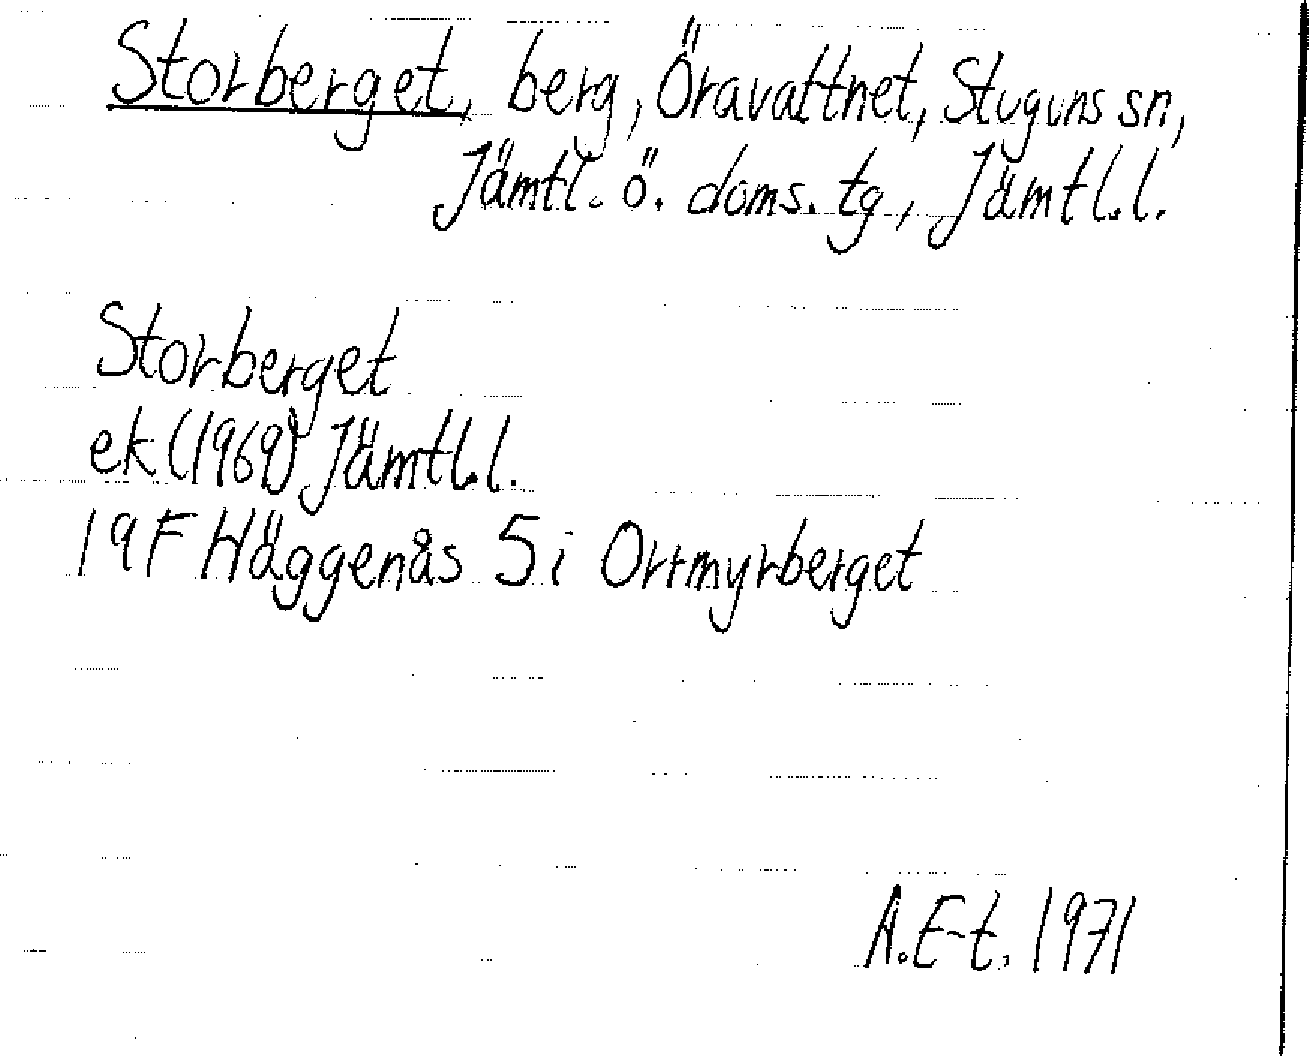 Storberget, berg, Öravattnet, Stuguns sn,
Jämtl. ö. doms. tg, Jämtl.l.
Storberget
ek (1969) Jämtl.l.
19F Häggenås 5i Orrmyrberget
A.E-t. 1971